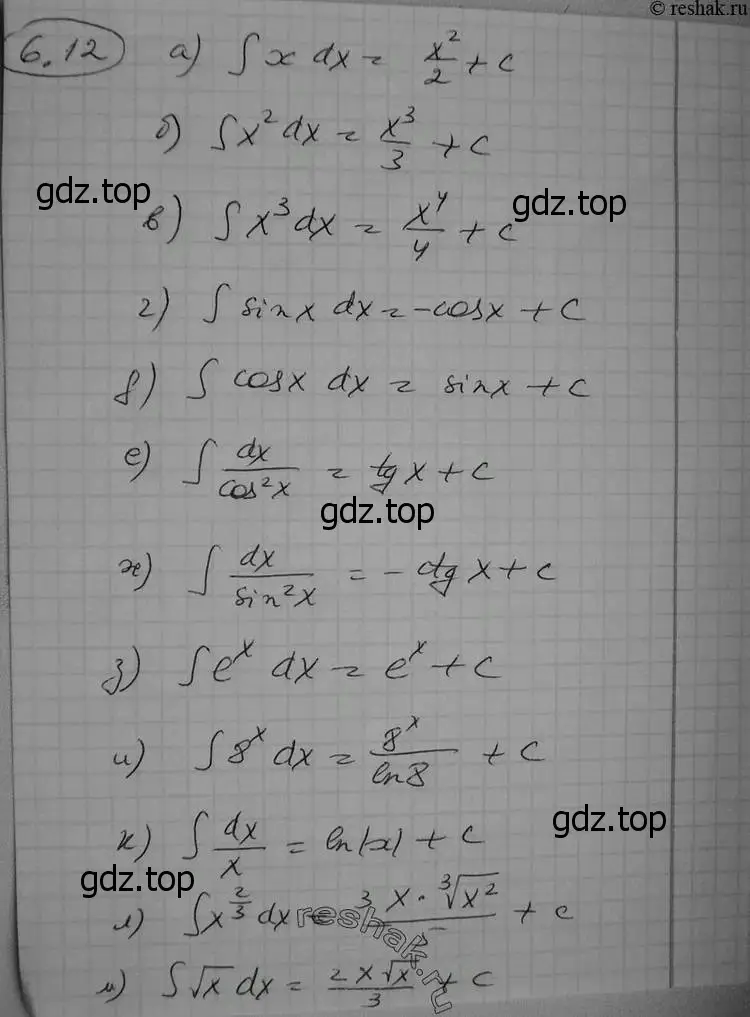 © reshak.ru
6.12 а) ∫ x dx = x²/2 + c
б) ∫ x² dx = x³/3 + c
gdz.top
gdz.top
в) ∫ x³ dx = x⁴/4 + c
г) ∫ sin x dx = -cos x + c
д) ∫ cos x dx = sin x + c
е) ∫ dx/cos²x = tg x + c
gdz.top
ж) ∫ dx/sin²x = -ctg x + c
з) ∫ eˣ dx = eˣ + c
и) ∫ 8ˣ dx = 8ˣ/ln8 + c
к) ∫ dx/x = ln|x| + c
gdz.top
gdz.top
л) ∫ x^(2/3) dx = 3x·∛x²/5 + c
reshak.ru
м) ∫ √x dx = 2x√x/3 + c